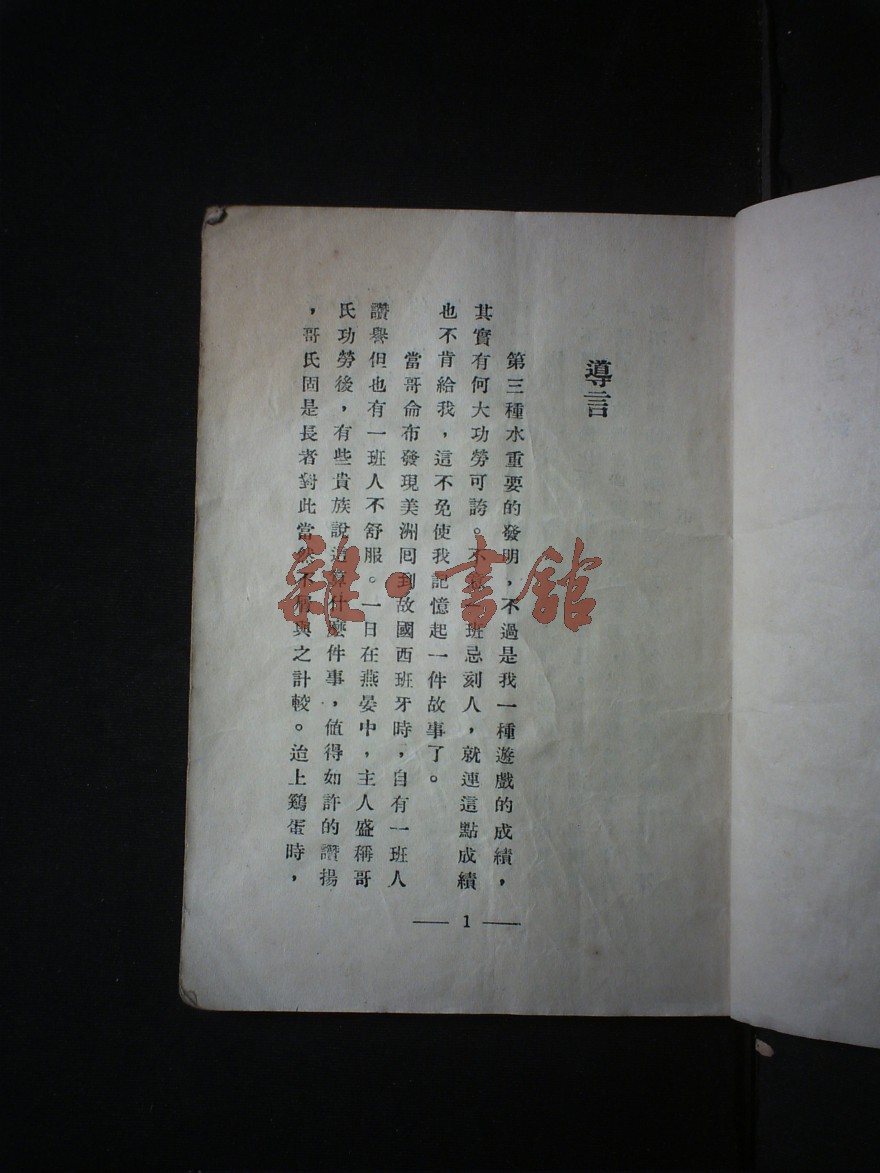 導言
第三種水重要的發明，不過是我一種遊戲的成績，
其實有何大功勞可誇。不意一班忌刻人，就連這點成績
也不肯給我，這不免使我記憶起一件故事了。
當哥侖布發現美洲囘到故國西班牙時，自有一班人
讚譽但也有一班人不舒服。一日在燕宴中，主人盛稱哥
氏功勞後，有些貴族說這算什麼件事，值得如許的讚揚
，哥氏固是長者對此當然不屑與之計較。迨上鷄蛋時，
— 1 —
雜·書館